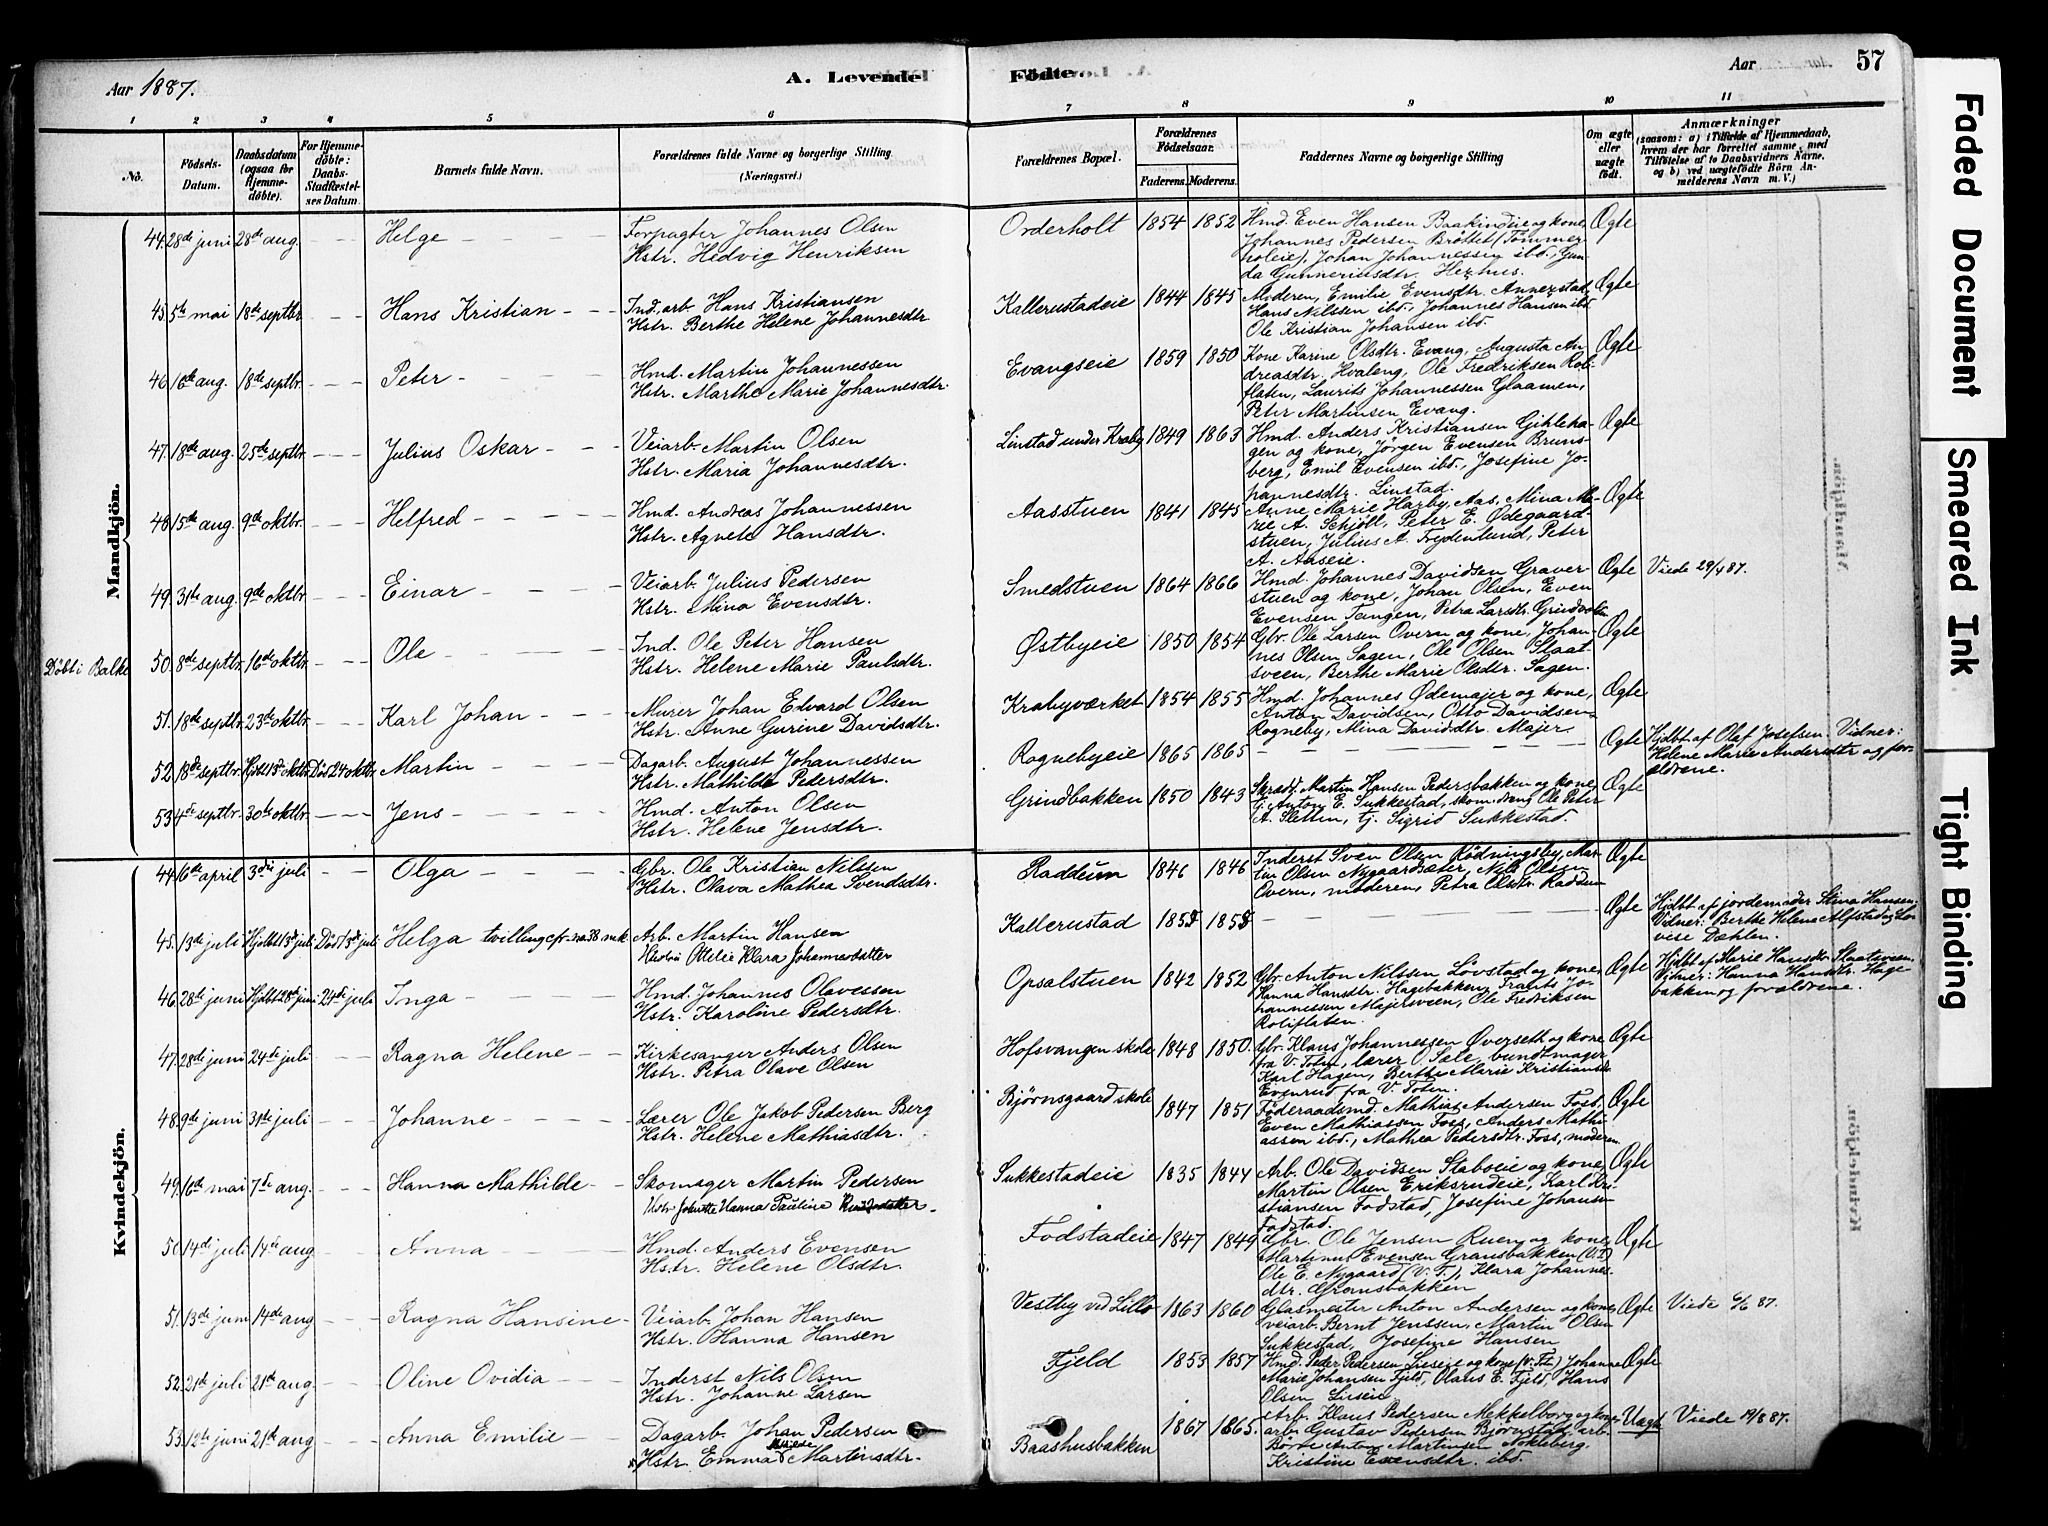 Aar 1887.
A. Levende
Fødte
Aar
57
1 2 3 4 5 6 7 8 9 10 11
No.
Fødsels-Datum.
Daabsdatum (ogsaa for Hjemmedøbte).
For Hjemmedøbte: Daabs-Stadfæstelses Datum.
Barnets fulde Navn.
Forældrenes fulde Navne og borgerlige Stilling (Næringsvei.)
Forældrenes Bopæl.
Forældrenes Fødselsaar.
Faderens. Moderens.
Faddernes Navne og borgerlige Stilling
Om ægte eller uægte født.
Anmærkninger
(saasom: a) i Tilfælde af Hjemmedaab, hvem der har forrettet samme, med Tilføielse af to Daabsvidners Navne, og b) ved uægtefødte Børn Anmelderens Navn m. V.)
Mandkjøn.
44. 28de juni 28de aug. Helge Forpagter Johannes Olsen Hstr. Hedvig Henriksen Orderholt 1854 1852 Hmd. Even Hansen Baakindeie og kone, Johannes Pedersen Brøttet (Tømmerholeie), Johan Johannessen ibd., Gunda Gunneriusdtr. Hexhus. Ægte
45. 5te mai 18de septbr Hans Kristian Ind. arb. Hans Kristiansen Hstr. Berthe Helene Johannesdtr Kallerustadeie 1844 1845 Moderen, Emilie Evensdtr. Annexstad, Hans Nilssen ibd., Johannes Hansen ibd. Ole Kristian Johansen ibd. Ægte
46 16de aug. 18de septbr. Peter Hmd. Martin Johannessen Hstr. Marthe Marie Johannesdtr. Evangseie 1859 1850 Kone Karine Olsdtr. Evang, Augusta Andreasdtr. Hvaleng, Ole Fredriksen Roliflaten, Laurits Johannessen Glaamen, Peter Martinsen Evang. Ægte
47. 18de aug. 25de septbr. Julius Oskar Veiarb. Martin Olsen Hstr. Maria Johannesdtr. Linstad under Kraby 1849 1863 Hmd. Anders Kristiansen Gihlehagen og kone, Jørgen Evensen Brunsberg, Emil Evensen ibd., Josefine Johannesdtr. Linstad. Ægte
48 15de aug. 9de oktbr. Helfred Hmd. Andreas Johannessen Hstr. Agnete Hansdtr. Aasstuen 1841 1845 Anne Marie Harby, Aas, Mina Marie A. Schjøll, Peter E. Ødegaardstuen, Julius A. Frydenlund, Peter A. Aaseie. Ægte
49. 31te aug. 9de oktbr Einar Veiarb. Julius Pedersen Hstr. Mina Evensdtr. Smedstuen 1864 1866 Hmd. Johannes Davidsen Graverstuen og kone, Johan Olsen, Even Evensen Tangen, Petra Larsdtr. Ægte Viede 29/4 87.
Døbt i Balke 50. 8de septbr. 16de oktbr Ole Ind. Ole Peter Hansen Hstr. Helene Marie Paulsdtr. Østbyeie 1850 1854 Gbr. Ole Larsen Overn og kone, Johannes Olsen Sagen, Ole Olsen Slaatsveen, Berthe Marie Olsdtr. Sagen. Ægte
51. 18de septbr. 23de oktbr. Karl Johan Murer Johan Edvard Olsen Hstr. Anne Gurine Davidsdtr. Krabyværket 1854 1855 Hmd. Johannes Ødemajer og kone, Anton Davidsen, Otto Davidsen Rogneby, Mina Davidsdtr. Majer. Ægte
52. 18de septbr. Hjdbt 13de oktbr. Død 24 oktbr. Martin Dagarb. August Johannessen Hstr. Mathilde Petersdtr. Rognebyeie 1865 1865 Ægte Hjdbt. af Olaf Josefsen. Vidner: Helene Marie Andersdtr og forældrene.
53 4de septbr. 30te oktbr. Jens Hmd. Anton Olsen Hstr. Helene Jensdtr. Grindbakken 1850 1843 Skrædd. Martin Hansen Pedersbakken og kone, tj. Anton E. Sukkestad, skom. dreng Ole Peter A. Sletten, tj. Sigrid Sukkestad. Ægte
Kvindekjøn.
44. 16de april 3die juli Olga Gbr. Ole Kristian Nilssen Hstr. Olava Mathea Svendsdtr. Raddum 1846 1846 Inderst Sven Olsen Rødningsby, Martin Olsen Nygaardsæter, Nils Olsen Overn, moderen, Petra Olsdtr. Raddum Ægte
45. 13de juli Hjdbt 13de juli Død 13de juli Helga tvilling Arb. Martin Hansen Hustru Otelie Klara Johannesdatter Kallerustad 1855 1858 Ægte Hjdbt. af jordemoder Stina Hansen. Vidner: Berthe Helene Alfstad og Lovise Dæhlen.
46. 28de juni Hjdbt 28de juni 24de juli Inga Hmd. Johannes Olavessen Hstr. Karoline Pedersdtr. Opsalstuen 1842 1852 Gbr. Anton Nilssen Løvstad og kone, Hanna Hansdtr. Hagebakken, Frants Johannessen Majersveen, Ole Fredriksen Roliflaten. Ægte Hjdbt. af Marie Hansdtr. Slaatsveen. Vidner: Hanna Hansdtr. Hagebakken og forældrene.
47. 28de juni 24de juli Ragna Helene Kirkesanger Anders Olsen Hstr. Petra Olave Olsen Hofsvangen skole 1848 1850. Gbr. Klaus Johannessen Øverseth og kone fra V. Toten, lærer O. Sæle, bundtmager Karl Hagen, Berthe Marie Kristiansdtr. Evenrud fra V. Toten. Ægte
48. 9de juni 31te juli Johanne Lærer Ole Jakob Pedersen Berg Hstr. Helene Mathiasdtr. Bjørnsgaard skole 1847 1851 Føderaadsmd. Mathias Andersen Foss, Even Mathiassen Foss, Anders Mathiassen ibd., Mathea Pedersdtr. Foss, moderen Ægte
49. 16de mai 7de aug. Hanna Mathilde Skomager Martin Pedersen Hstr Hanna Pauline Sukkestadeie 1835 1844 Arb. Ole Davidsen Stabseie og kone, Martin Olsen Eriksrudeie, Karl Kristiansen Fodstad, Josefine Johansen Fodstad. Ægte
50. 14de juli 14de aug Anna Hmd. Anders Evensen Hstr. Helene Olsdtr. Fodstadeie 1847 1849 Gbr. Ole Jensen Ruen og kone, Martinus Evensen Gransbakken (V.T) Ole E. Nygaard (V.T.), Klara Johannesdtr. Gransbakken Ægte
51. 13de juni 14de aug Ragna Hansine Veiarb. Johan Hansen Hstr. Hanna Hansen Vestby ved Lillo 1863 1860 Glasmester Anton Andersen og kone, veiarb. Bernt Jenssen, Martin Olsen Sukkestad, Josefine Hansen Ægte Viede 6/6 87.
52. 21de juli 21de aug. Oline Ovidia Inderst Nils Olsen Hstr. Johanne Larsen Fjeld 1853 1857 Hmd. Peder Pedersen Lieseie og kone (V. Tot.) Johanne Marie Johansen Fjeld, Olaus E. Fjeld, Hans Olsen Lieseie. Ægte
53. 12te juni 21de aug Anna Emilie Dagarb. Johan Pedersen Hstr. Emma Martinsdtr. Baashusbakken 1867 1865. Arb. Klaus Pedersen Mekkelborg og kone, arb. Gustav Pedersen Bjørnstad, arb. Børre Anton Martinsen Nøkleberg, Kristine Evensdtr. ibd. Uægt Viede 19/8 87.
Faded Document
Smeared Ink
Tight Binding